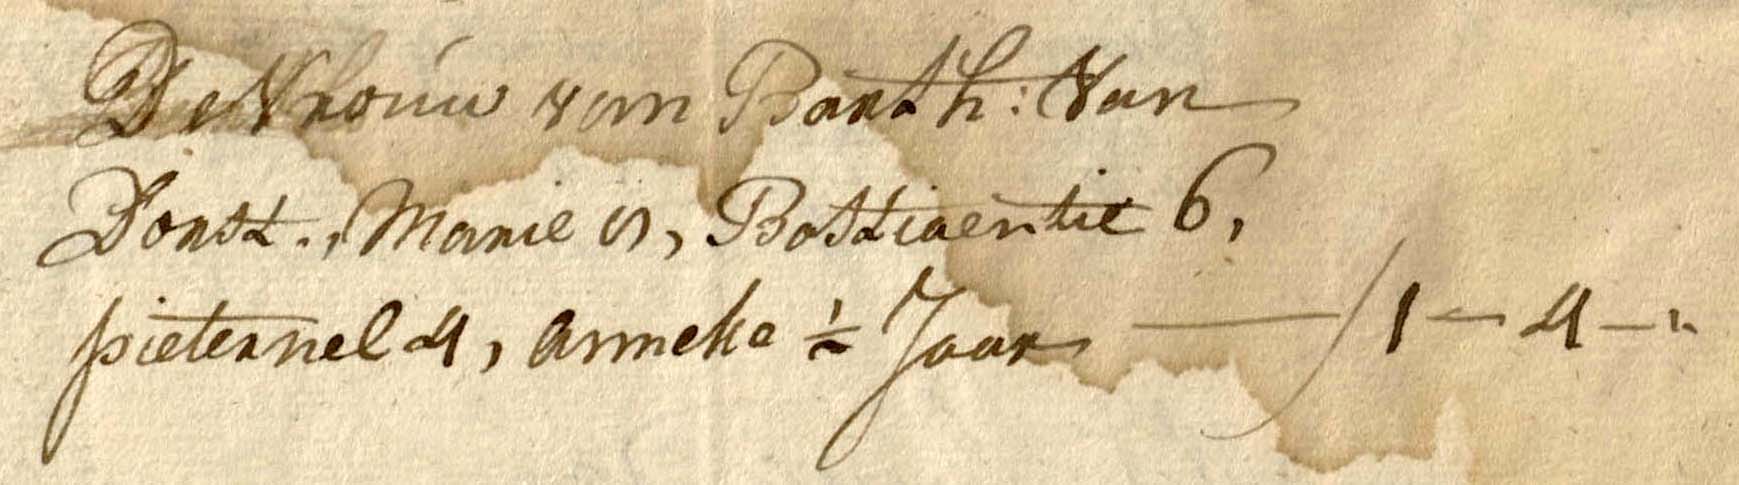 De Vrouw van Barth: Van
Dorst., Marie 9, Bastiaentie 6,
pieternel 4, Anneke ½ Jaar — ƒ 1 — 4 — "